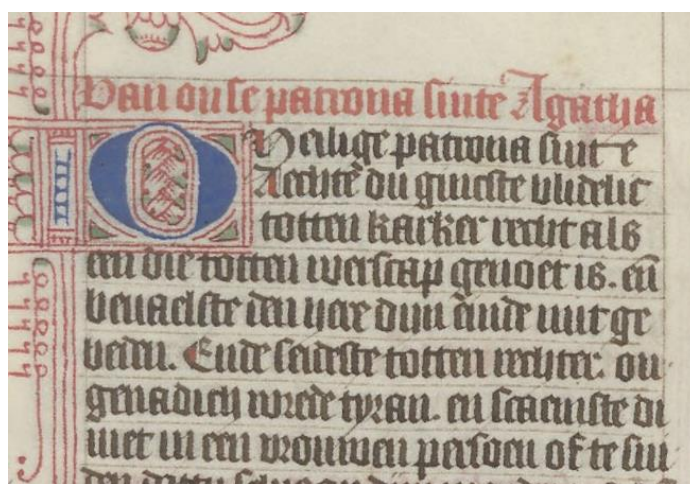 Van onse patrona sinte Agatha
O Heilige patrona sinte
Aechte du gincste blidelic
totten karker recht als
een die totten werscap genoet is. en̄
beuaelste den here dijn einde mit ge
beden. Ende seideste totten rechter. on
genadich wrede tyran. en scaemste di
niet in een vrouwen persoen of te sni